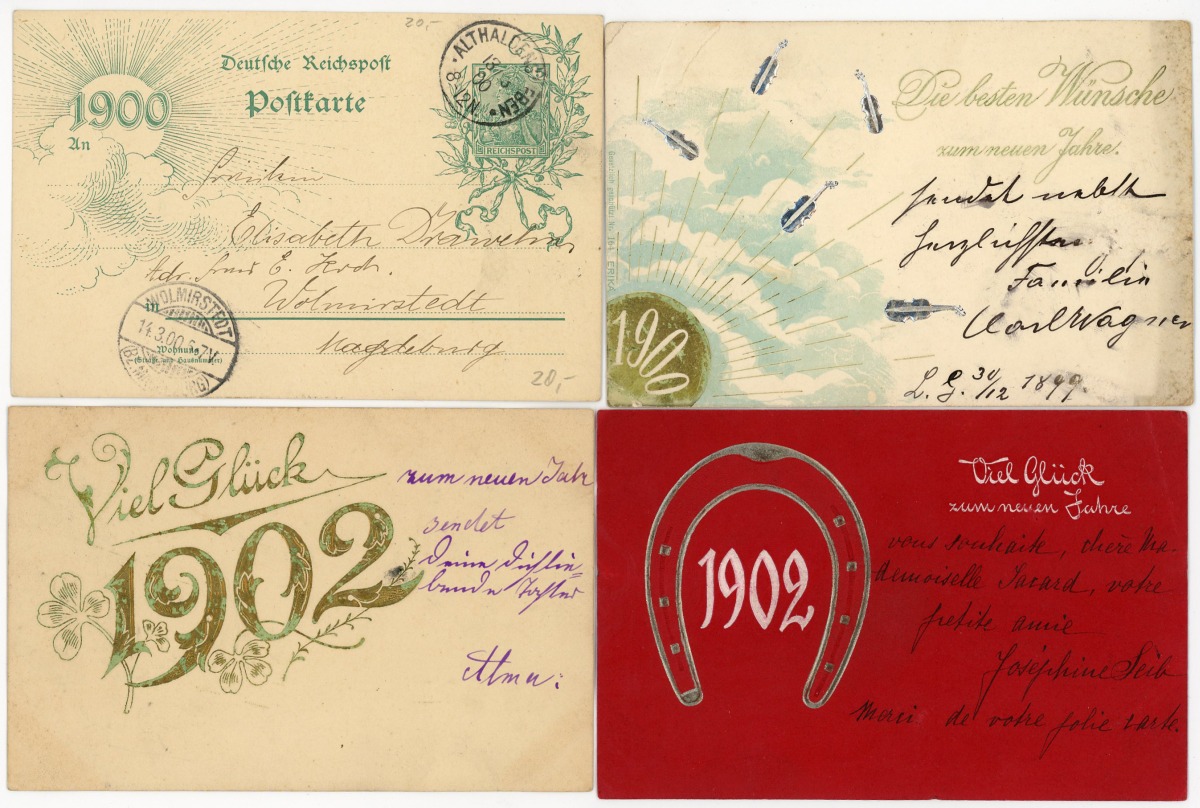 20,-
Deutsche Reichspost
1900
Postkarte
An
ALTHALDENSLEBEN
13 3 00
8-12N.
REICHSPOST
Fräulein
Elisabeth
Adr. E. Koch.
in Wolmirstedt
Wohnung
(Straße und Hausnummer)
Magdeburg
WOLMIRSTEDT
14.3.00
(BZ. MAGDEBURG)
20,-
Die besten Wünsche
zum neuen Jahre.
sendet nebst
herzlichsten
Familie
Carl Wagner
L. G. 30/12 1899.
1900
Viel Glück
1902
zum neuen Jahr
sendet
Deine Dich lie-
bende Tochter
Alma.
Viel Glück
zum neuen Jahre
1902
vous souhaite, chère Ma-
demoiselle Jacard, votre
petite amie
Joséphine Seib
Merci de votre jolie carte.